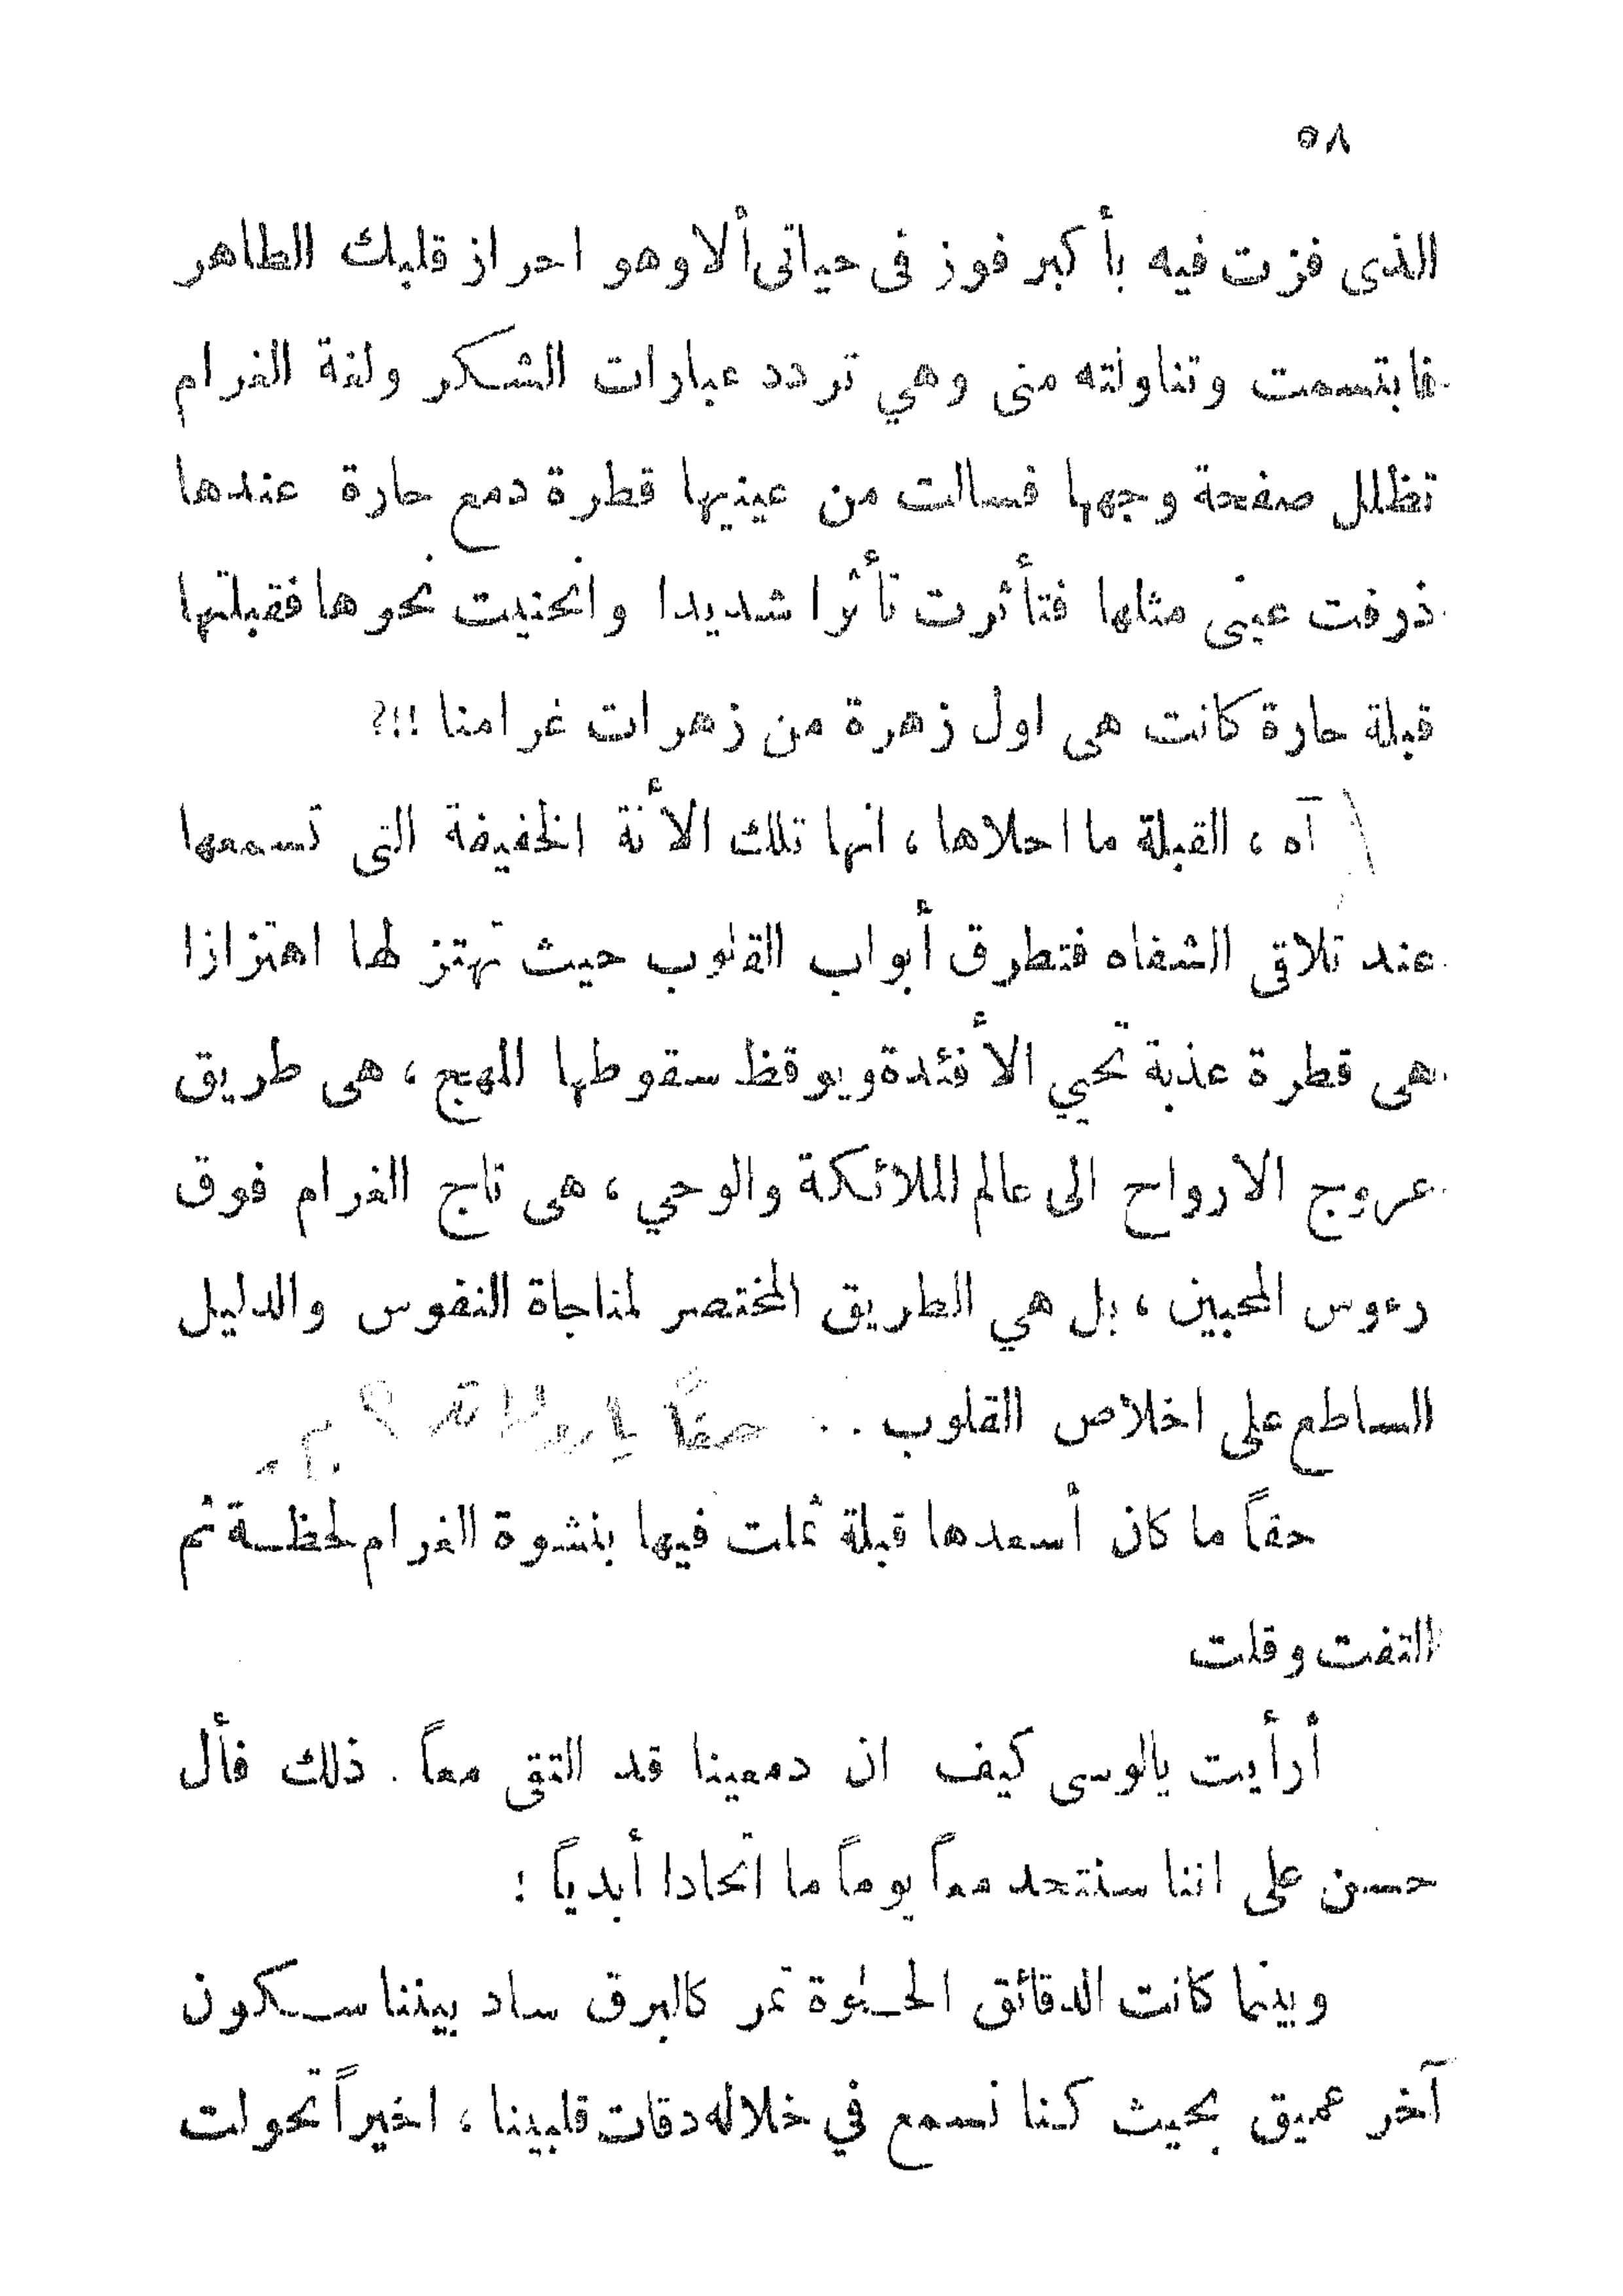 ٥٨
الذى فزت فيه بأكبر فوز فى حياتى ألا وهو احراز قلبك الطاهر
فابتسمت وتناولته منى وهي تردد عبارات الشكر ولغة الغرام
تظلل صفحة وجهها فسالت من عينيها قطرة دمع حارة عندها
ذرفت عينى مثلها فتأثرت تأثرا شديدا وانحنيت نحوها فقبلتها
قبلة حارة كانت هى اول زهرة من زهرات غرامنا !!؟
آه ، القبلة ما احلاها ، انها تلك الأنة الخفيفة التى تسمعها
عند تلاقى الشفاه فتطرق أبواب القلوب حيث تهتز لها اهتزازا
هى قطرة عذبة تحيي الأفئدة ويوقظ سقوطها المهج ، هى طريق
عروج الارواح الى عالم الملائكة والوحي ، هى تاج الغرام فوق
رءوس المحبين ، بل هي الطريق المختصر لمناجاة النفوس والدليل
الساطع على اخلاص القلوب . . حقاً يا
حقاً ما كان أسعدها قبلة ثملت فيها بنشوة الغرام لحظة ثم
التفت وقلت
أرأيت يالوسى كيف ان دمعينا قد التقى معاً . ذلك فأل
حسن على اننا سنتحد معاً يوماً ما اتحادا أبدياً :
وبينما كانت الدقائق الحلوة تمر كالبرق ساد بيننا سكون
آخر عميق بحيث كنا نسمع في خلاله دقات قلبينا ، اخيراً تحولت